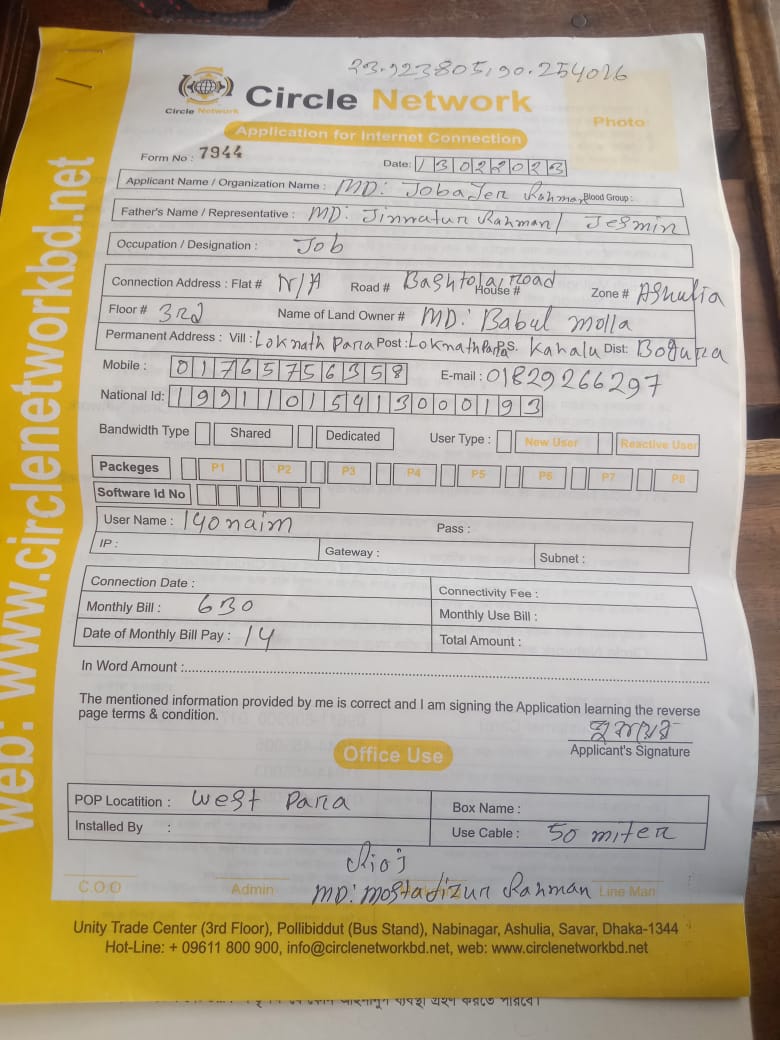 23.923805,90.254026
Circle Network
Circle Network
Application for Internet Connection
Photo
Form No : 7944
Date: 13022023
Applicant Name / Organization Name : MD: Jobayer Rahman Blood Group :
Father's Name / Representative : MD: Jinnatur Rahman / Jesmin
Occupation / Designation : Job
Connection Address : Flat # N/A Road # Bashtola, Road House # Zone # Ashulia
Floor # 3rd Name of Land Owner # MD: Babul Molla
Permanent Address : Vill : Loknath Para Post : Loknath Para P.S. Kahalu Dist: Bogura
Mobile : 01765756358 E-mail : 01829266297
National Id: 19911015413000193
Bandwidth Type Shared Dedicated User Type : New User Reactive User
Packeges P1 P2 P3 P4 P5 P6 P7 P8
Software Id No
User Name : 140naim Pass :
IP : Gateway : Subnet :
Connection Date : Connectivity Fee :
Monthly Bill : 630 Monthly Use Bill :
Date of Monthly Bill Pay : 14 Total Amount :
In Word Amount :
The mentioned information provided by me is correct and I am signing the Application learning the reverse
page terms & condition.
Applicant's Signature
Office Use
POP Locatition : West Para Box Name :
Installed By : Use Cable : 50 miter
C.O.O Admin MD: Mostafizur Rahman Line Man
Unity Trade Center (3rd Floor), Pollibiddut (Bus Stand), Nabinagar, Ashulia, Savar, Dhaka-1344
Hot-Line: + 09611 800 900, info@circlenetworkbd.net, web: www.circlenetworkbd.net
web: www.circlenetworkbd.net